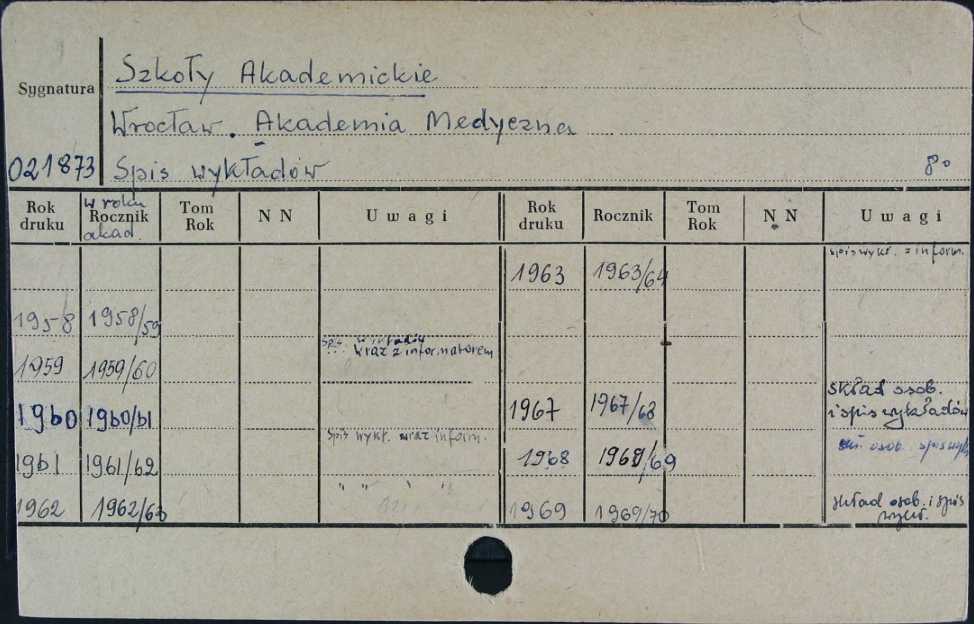 Szkoły Akademickie
Sygnatura
Wrocław. Akademia Medyczna
021873 Spis wykładów 8°
Rok druku w roku Rocznik akad. Tom Rok NN Uwagi Rok druku Rocznik Tom Rok NN Uwagi
1963 1963/64 spis wykł. z inform.
1958 1958/59
1959 1959/60 Spis wykładów wraz z informatorem
1960 1960/61 1967 1967/68 skład osob. i spis wykładów
1961 1961/62 Spis wykł. wraz inform. 1968 1968/69 osob. spis wykł
1962 1962/63 " " " " 1969 1969/70 skład osob. i spis wykł.